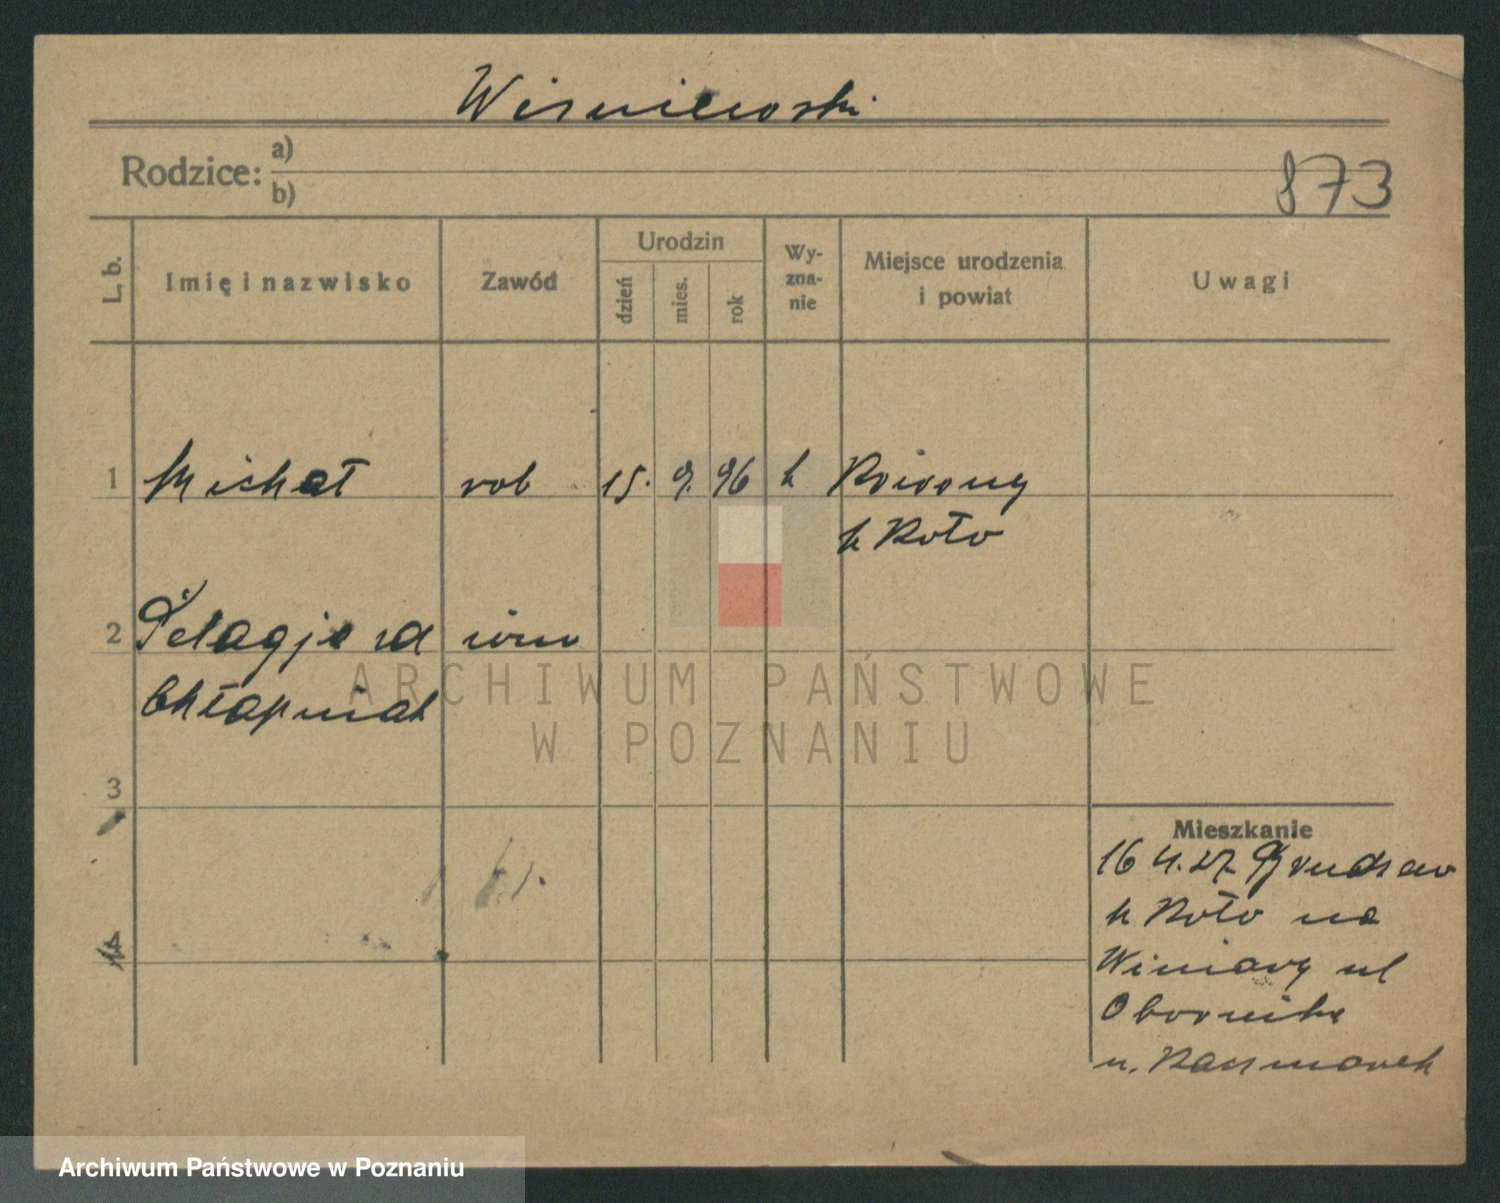 Wiśniewski
Rodzice: a)
b)
873
L. b. Imię i nazwisko Zawód Urodzin dzień mies. rok Wy-zna-nie Miejsce urodzenia i powiat Uwagi
1 Michał rob 15. 9. 96 k
k Koło
2 Pelagja zd
Chłapniak
3
4
Mieszkanie
16 4. 27
k Koło na
Winiary ul
Obornika
u. Kaczmarek
ARCHIWUM PAŃSTWOWE
W POZNANIU
Archiwum Państwowe w Poznaniu